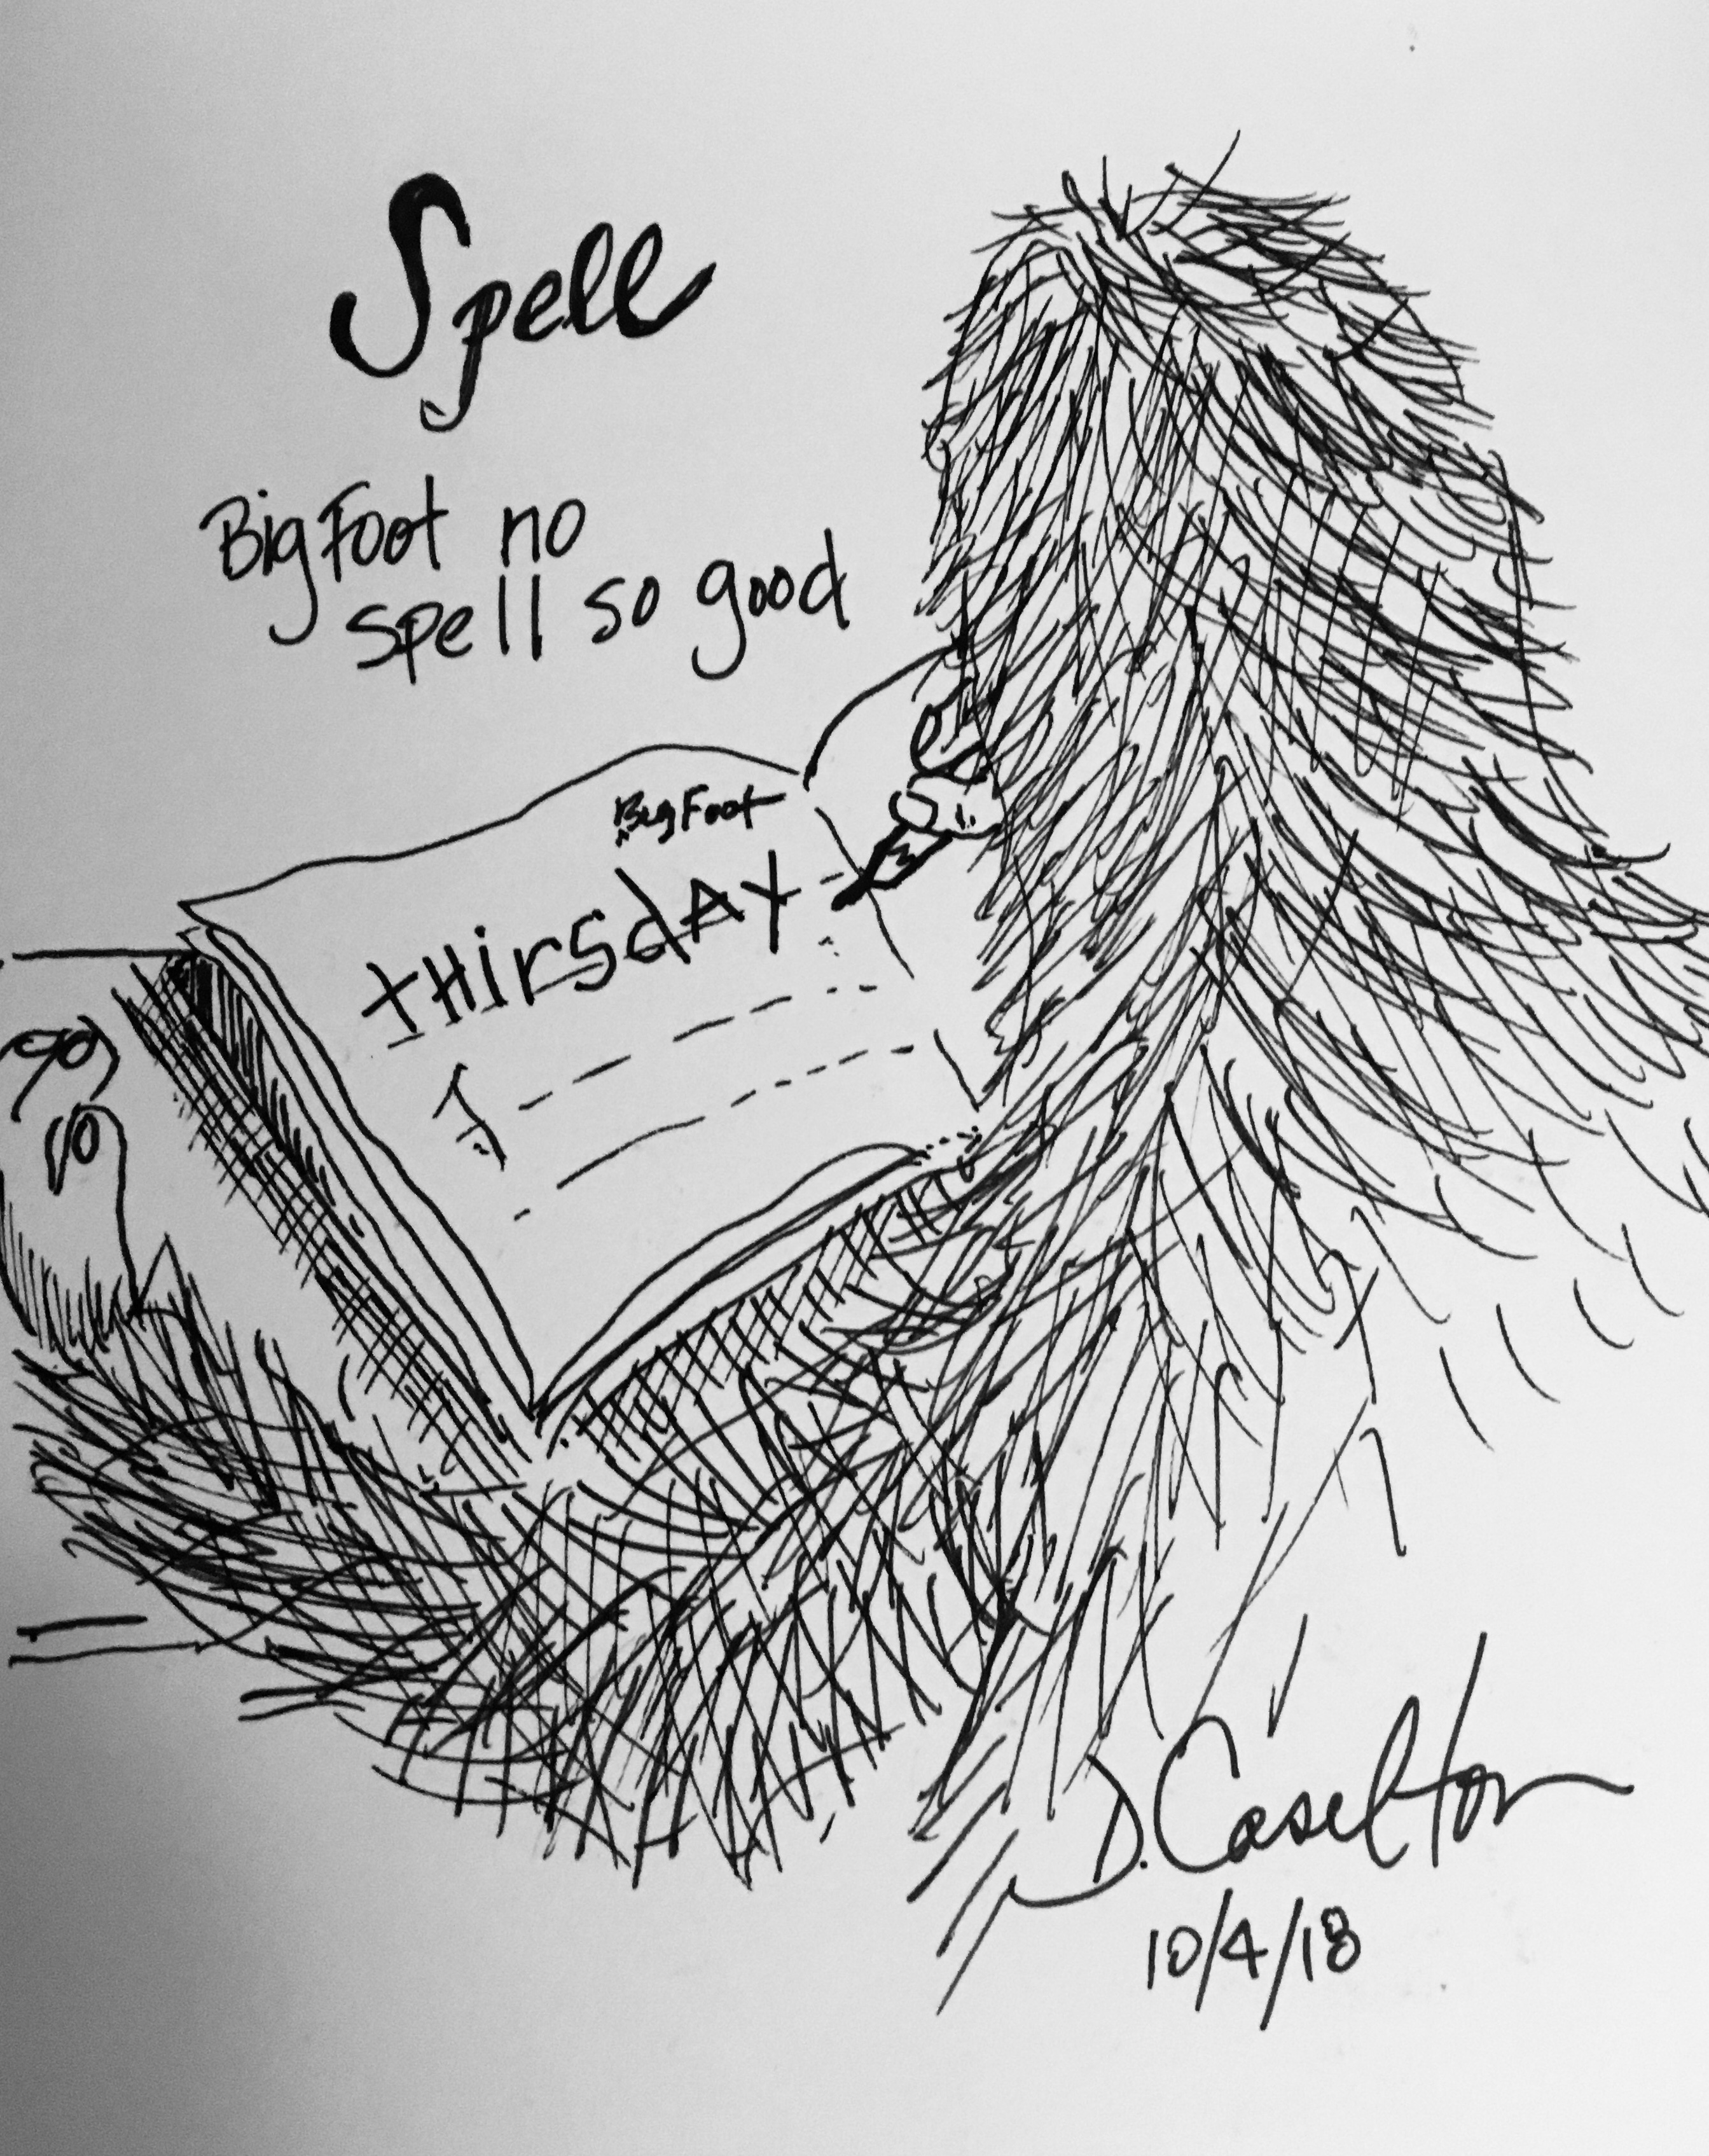 Spell
BigFoot no
spell so good
BigFoot
tHirsdAy
D. Caselton
10/4/18